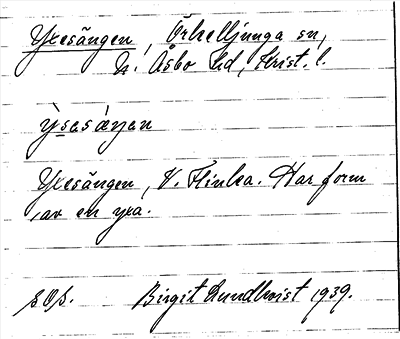 Yxesängen, Örkelljunga sn,
N. Åsbo hd, Krist. l.
ỳsesáŋan
Yxesängen, V. Flinka. Har form
av en yxa.
sOs. Birgit Lundkvist 1939.